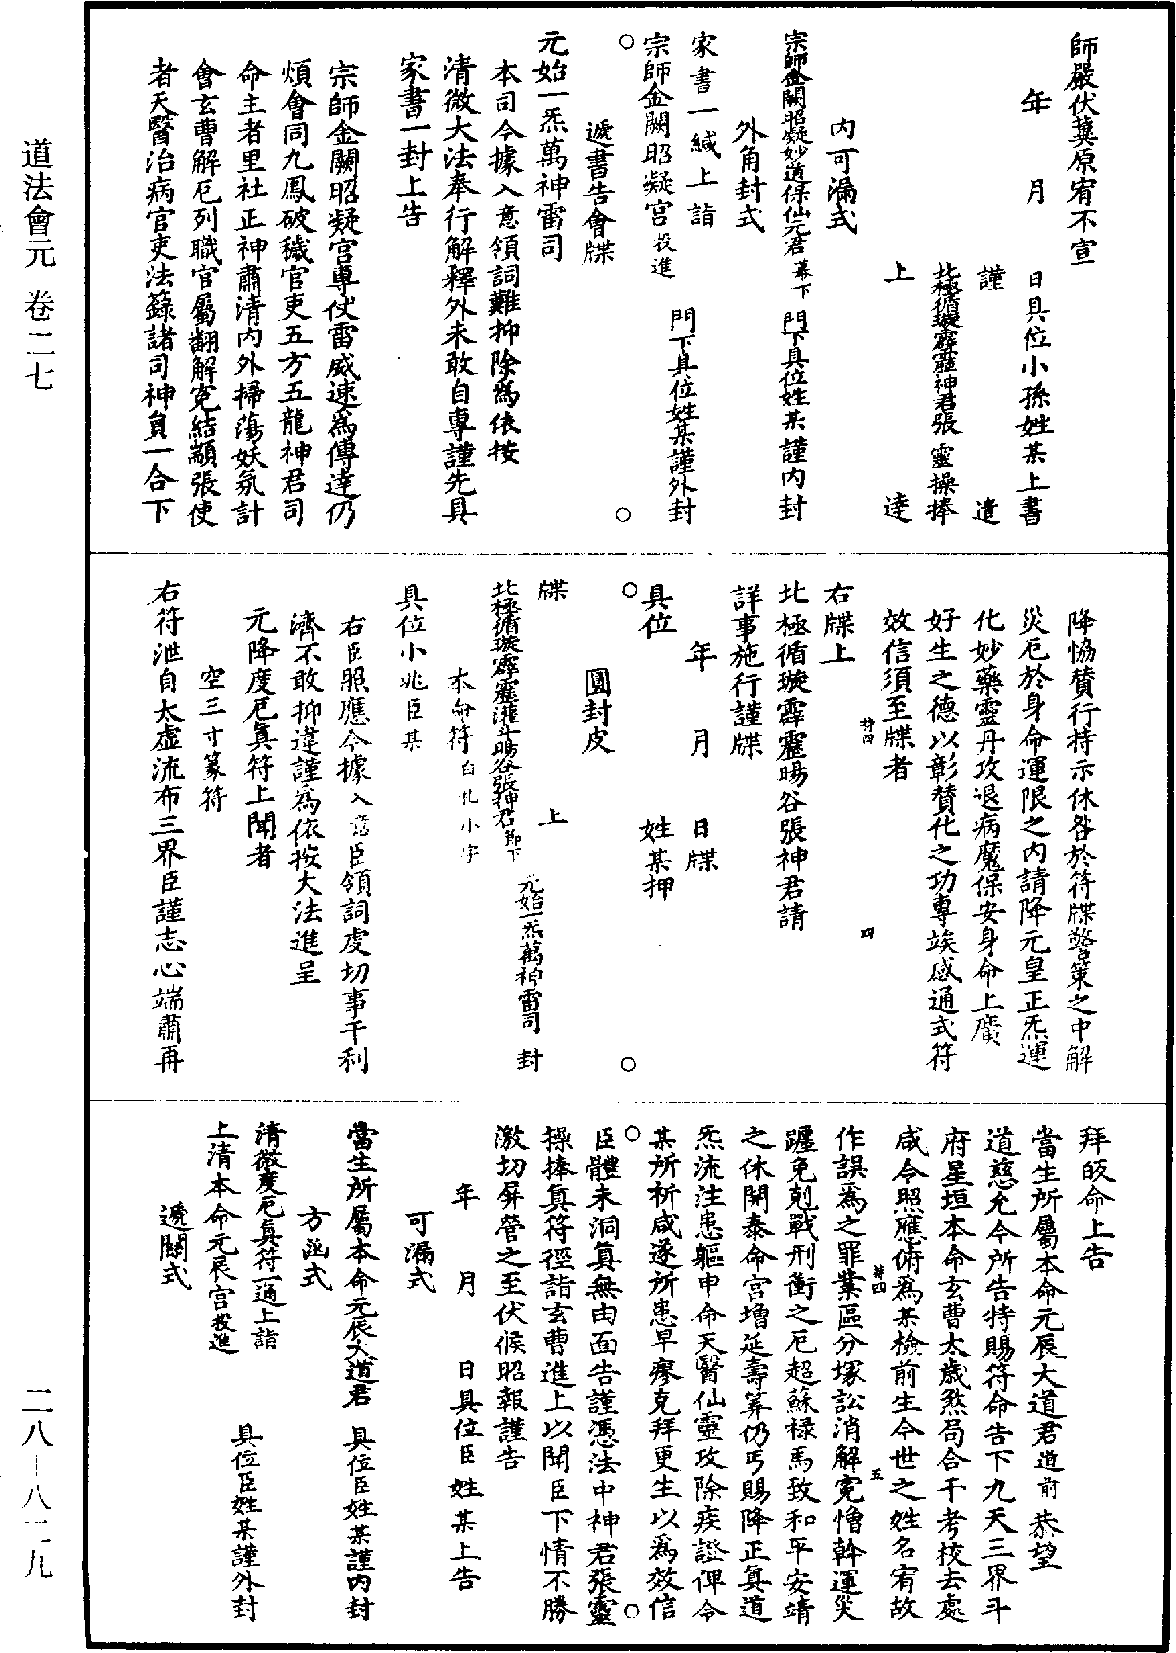 師嚴伏冀原宥不宣
年　月　日具位小孫姓某上書
謹　遣
北極循璇霹靂神君張靈操捧
上　達
內可漏式
宗師金闕昭凝妙道保仙元君幕下　門下具位姓某謹內封
外角封式
家書一緘上詣
宗師金闕昭凝宮投進　門下具位姓某謹外封
遞書告會牒
元始一炁萬神雷司
本司今據入意領詞難抑除為依按
清微大法奉行解釋外未敢自專謹先具
家書一封上告
宗師金闕昭凝宮專仗雷威速為傳達仍
煩會同九鳳破穢官吏五方五龍神君司
命主者里社正神肅清內外掃蕩妖氛計
會玄曹解厄列職官屬翻解冤結顓張使
者天醫治病官吏法籙諸司神員一合下
降協贊行持示休咎於符牒警策之中解
災厄於身命運限之內請降元皇正炁運
化妙藥靈丹攻退病魔保安身命上廣
好生之德以彰贊化之功專竢感通式符
效信須至牒者
右牒上
北極循璇霹靂暘谷張神君請
詳事施行謹牒
年　月　日牒
具位　姓某押
圓封皮
牒　上
北極循璇霹靂灌斗暘谷張神君即下　元始一炁萬神雷司　封
本命符白札小字
具位小兆臣某
右臣照應今據入意臣領詞虔切事干利
濟不敢抑違謹為依按大法進呈
元降度厄真符上聞者
空三寸篆符
右符泄自太虛流布三界臣謹志心端肅再
拜皈命上告
當生所屬本命元辰大道君道前恭望
道慈允令所告特賜符命告下九天三界斗
府星垣本命玄曹太歲煞局合干考校去處
咸令照應俯為某檢前生今世之姓名宥故
作誤為之罪業區分塚訟消解冤憎幹運災
躔免剋戰刑衝之厄超蘇祿馬致和平安靖
之休開泰命宮增延壽筭仍丐賜降正真道
炁流注患軀申命天醫仙靈攻除疾證俾令
某所祈咸遂所患早瘳克拜更生以為效信
臣體未洞真無由面告謹憑法中神君張靈
操捧真符徑詣玄曹進上以聞臣下情不勝
激切屏營之至伏候昭報謹告
年　月　日具位臣姓某上告
可漏式
當生所屬本命元辰大道君　具位臣姓某謹內封
方函式
清微度厄真符一通上詣
上清本命元辰宮投進　具位臣姓某謹外封
遞關式
道法會元　卷二七
二八－八二九